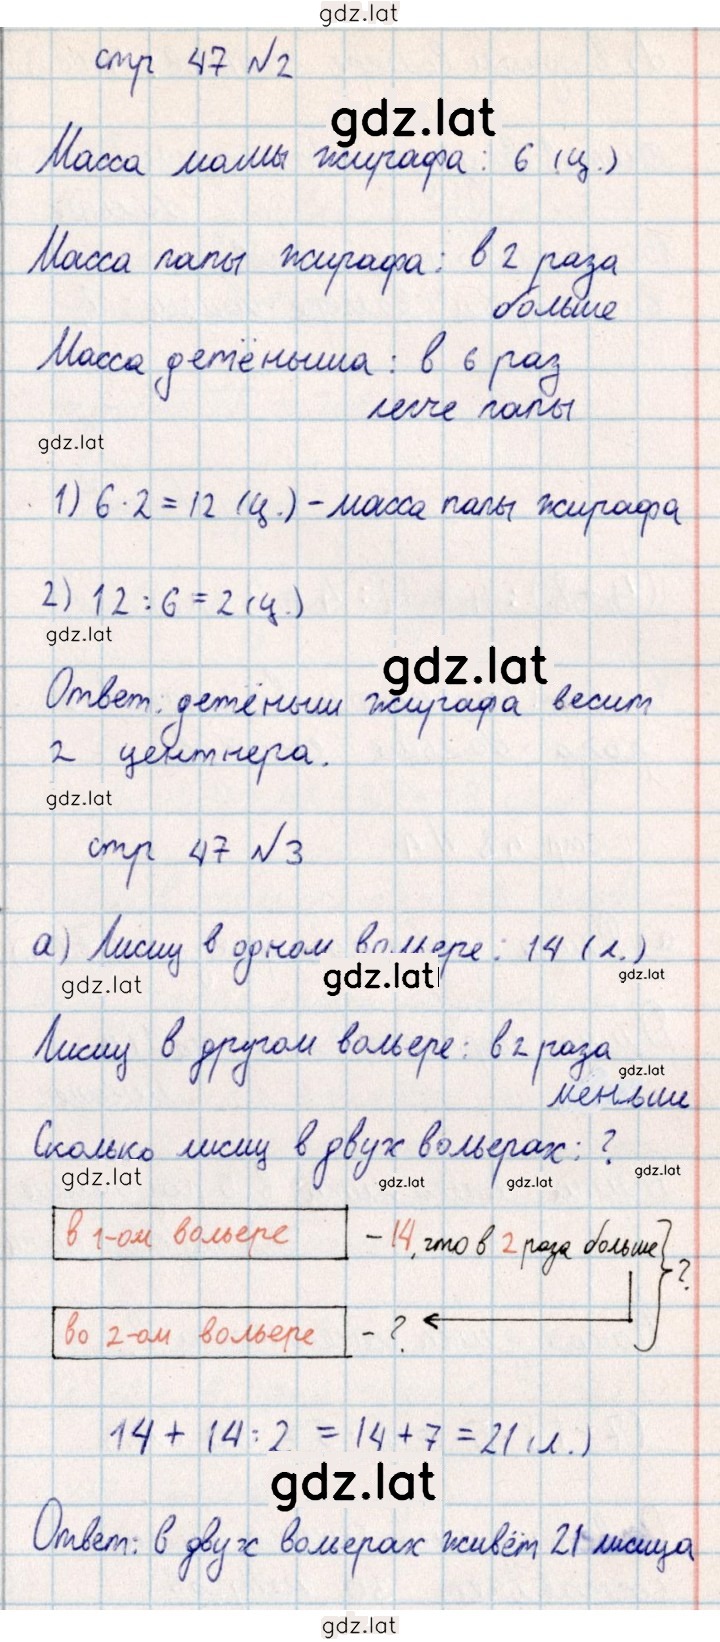 gdz.lat
стр 47 №2
gdz.lat
Масса мамы жирафа: 6 (ц.)
Масса папы жирафа: в 2 раза
больше
Масса детёныша: в 6 раз
легче папы
gdz.lat
1) 6·2=12 (ц.) - масса папы жирафа
2) 12:6=2(ц.)
gdz.lat
gdz.lat
Ответ: детёныш жирафа весит
2 центнера.
gdz.lat
стр 47 №3
а) Лисиц в одном вольере: 14 (л.)
gdz.lat gdz.lat gdz.lat
Лисиц в другом вольере: в 2 раза
gdz.lat
меньше
Сколько лисиц в двух вольерах: ?
gdz.lat gdz.lat gdz.lat gdz.lat
в 1-ом вольере - 14, что в 2 раза больше
?
во 2-ом вольере - ?
14 + 14:2 = 14+7=21(л.)
gdz.lat
Ответ: в двух вольерах живёт 21 лисица
gdz.lat